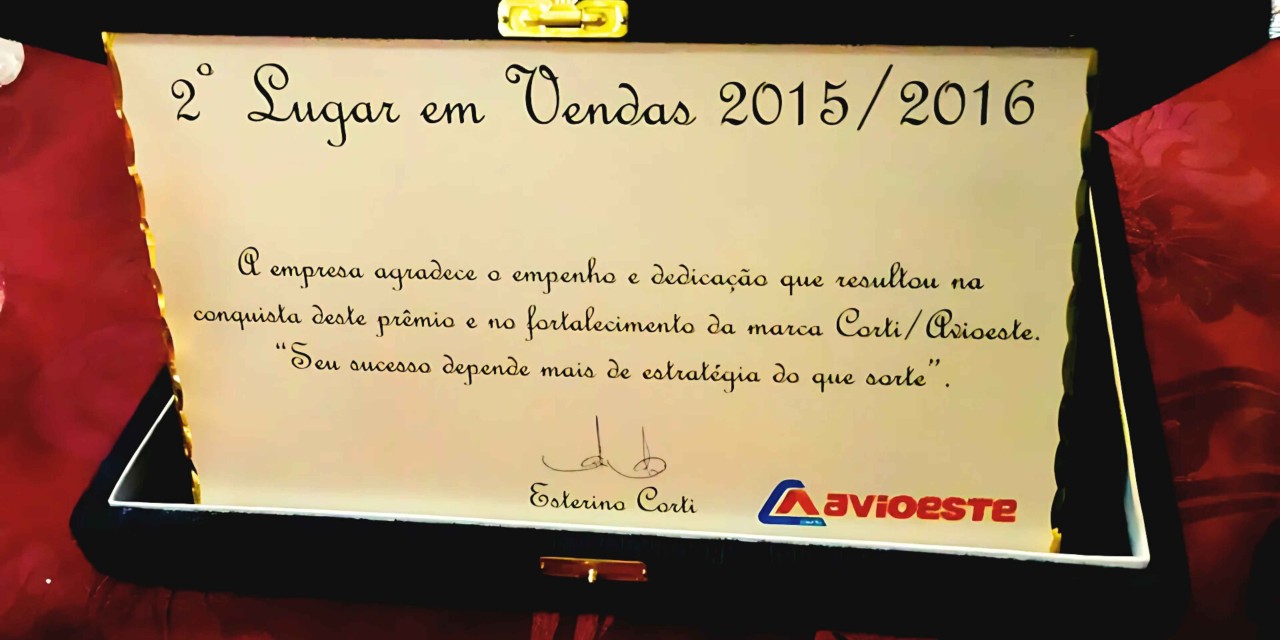 2º Lugar em Vendas 2015/2016
A empresa agradece o empenho e dedicação que resultou na
conquista deste prêmio e no fortalecimento da marca Corti/Avioeste.
“Seu sucesso depende mais de estratégia do que sorte”.
Esterino Corti
avioeste